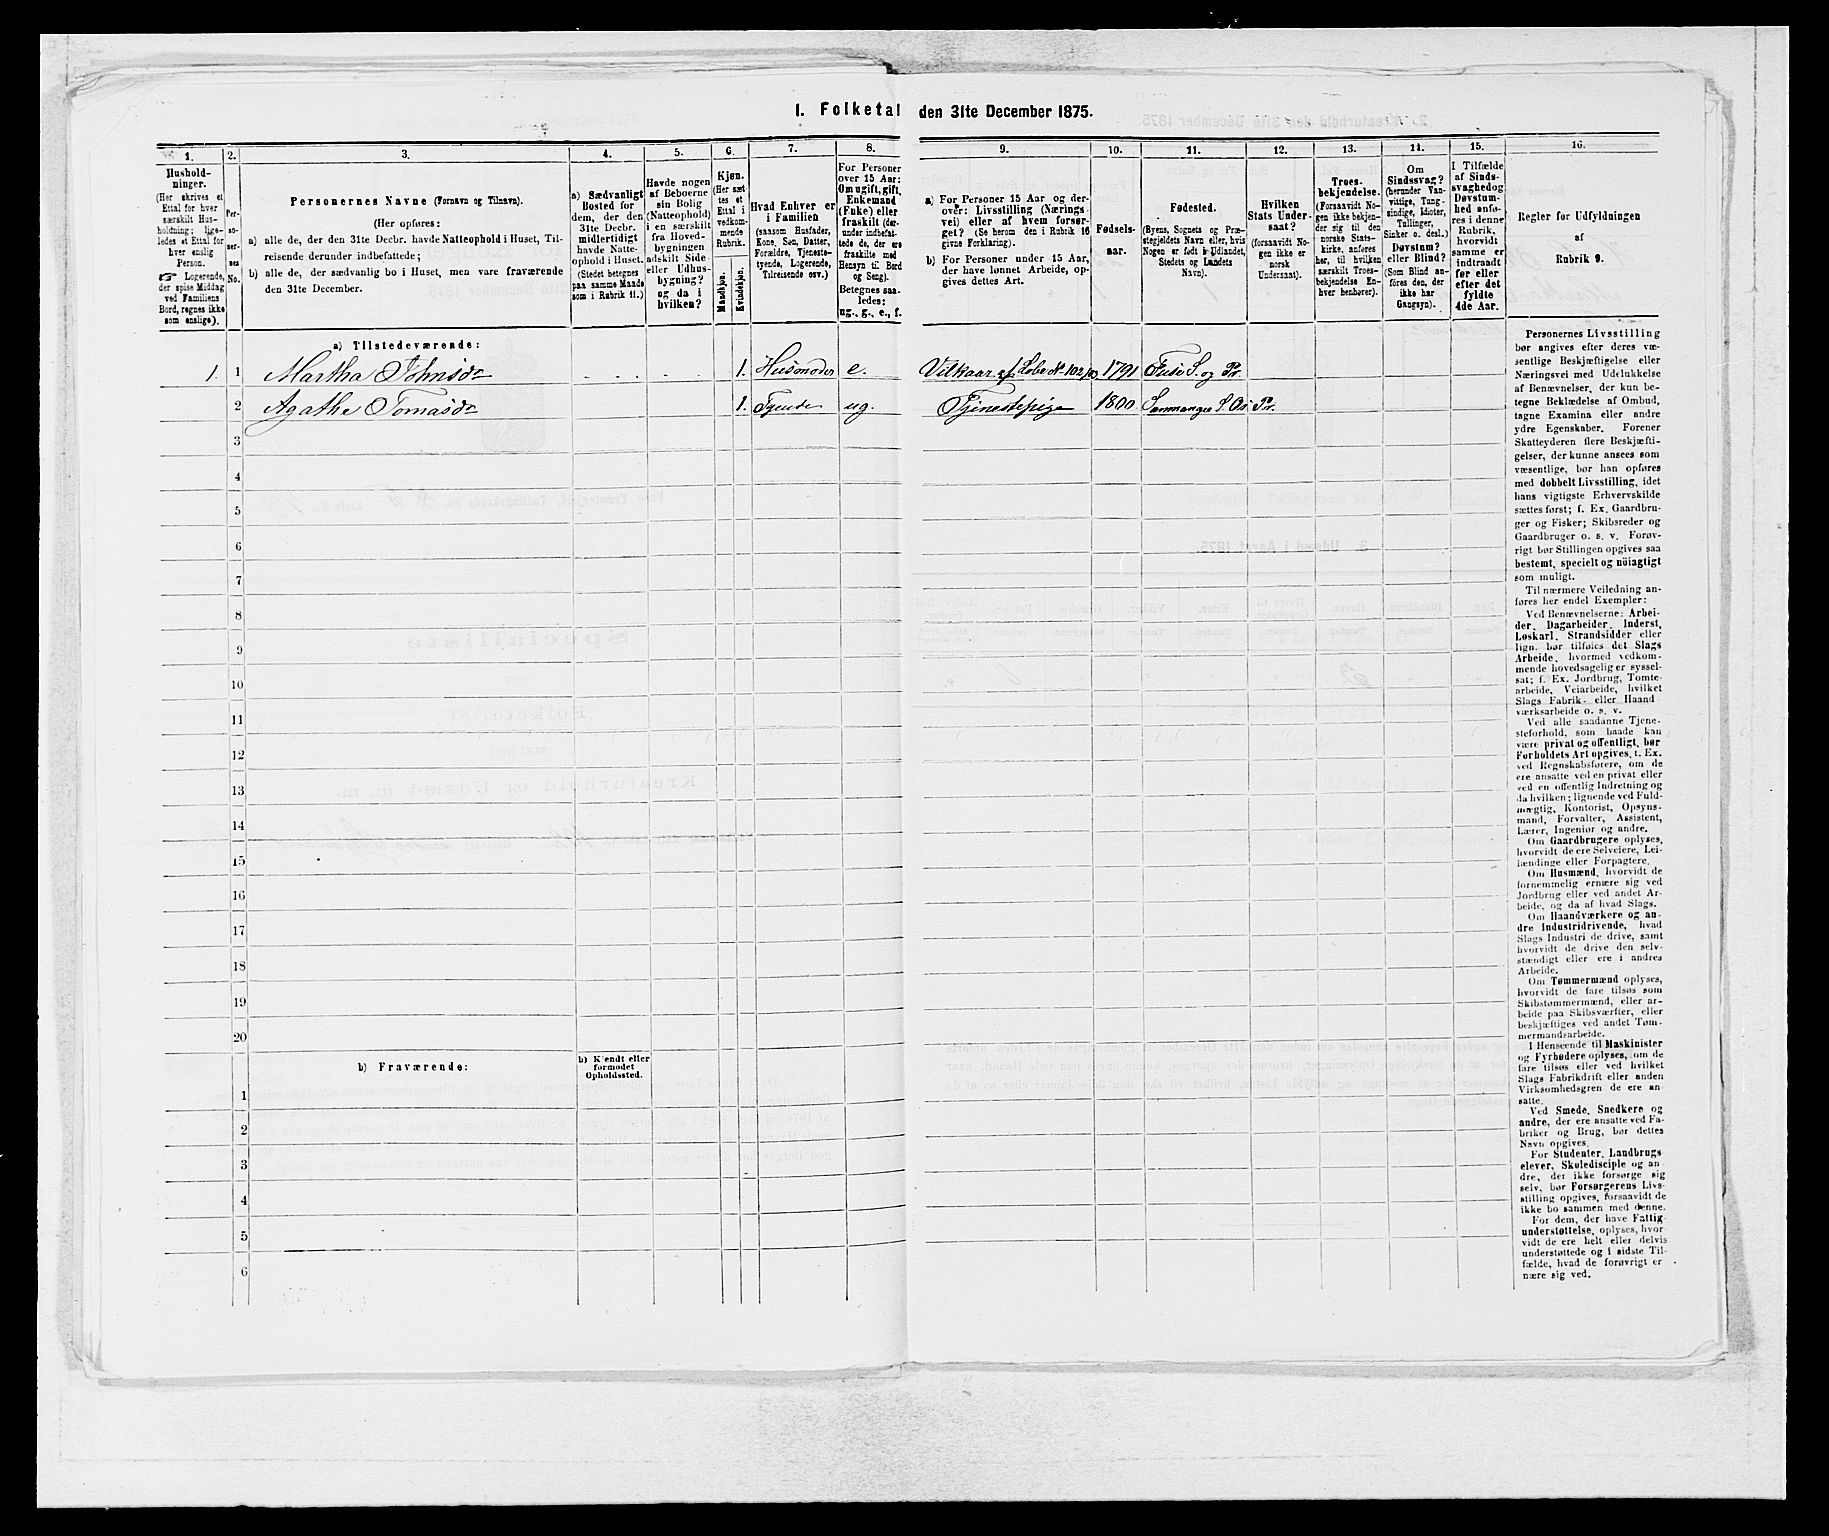 1. Folketal den 31te December 1875.
1.
2.
3.
4.
5.
6.
7.
8.
9.
10.
11.
12.
13.
14.
15.
16.
Hushold-
ninger.
(Her skrives et
Ettal for hver
særskilt Hus-
holdning; lige-
ledes et Ettal for
hver enslig
Person.
☞ Logerende,
der spise Middag
ved Familiens
Bord, regnes ikke
som enslige).
Per-
so-
ner-
nes
No.
Personernes Navne (Fornavn og Tilnavn).
(Her opføres:
a) alle de, der den 31te Decbr. havde Natteophold i Huset, Til-
reisende derunder indbefattede;
b) alle de, der sædvanlig bo i Huset, men vare fraværende
den 31te December.
a) Sædvanligt
Bosted for
dem, der den
31te Decbr.
midlertidigt
havde Natte-
ophold i Huset.
(Stedet betegnes
paa samme Maade
som i Rubrik 11.)
Havde nogen
af Beboerne
sin Bolig
(Natteophold)
i en særskilt
fra Hoved-
bygningen
adskilt Side-
eller Udhus-
bygning?
og da i
hvilken?
Kjøn.
(Her sæt-
tes et
Ettal i
vedkom-
mende
Rubrik.
Mandkjøn.
Kvindekjøn.
Hvad Enhver er
i Familien
(saasom Husfader,
Kone, Søn, Datter,
Forældre, Tjeneste-
tyende, Logerende,
Tilreisende osv.)
For Personer
over 15 Aar:
Om ugift, gift,
Enkemand
(Enke) eller
fraskilt (der-
under indbefat-
tede de, der ere
fraskilte med
Hensyn til Bord
og Seng).
Betegnes saa-
ledes:
ug., g., e., f.
a) For Personer 15 Aar og der-
over: Livsstilling (Nærings-
vei) eller af hvem forsør-
get? (Se herom den i Rubrik 16
givne Forklaring).
b) For Personer under 15 Aar,
der have lønnet Arbeide, op-
gives dettes Art.
Fødsels-
aar.
Fødested.
(Byens, Sognets og Præ-
stegjeldets Navn eller, hvis
Nogen er født i Udlandet,
Stedets og Landets
Navn).
Hvilken
Stats Under-
saat?
(forsaavidt No-
gen ikke er
norsk
Undersaat).
Troes-
bekjendelse.
(Forsaavidt No-
gen ikke bekjen-
der sig til den
norske Stats-
kirke, anføres
her, til hvilken
særskilt Troes-
bekjendelse En-
hver henhører).
Om
Sindssvag?
(herunder Van-
vittige, Tung-
sindige, Idioter,
Tullinger,
Sinker o. desl.)
Døvstum?
eller Blind?
(Som Blind an-
føres den, der
ikke har
Gangsyn).
I Tilfælde
af Sinds-
svaghed og
Døvstum-
hed anfø-
res i denne
Rubrik,
hvorvidt
samme er
indtraadt
før eller
efter det
fyldte
4de Aar.
Regler for Udfyldningen
af
Rubrik 9.
a) Tilstedeværende:
1. 1 Martha Johnsdr 1. Husmoder e. Vilkaar af 1791 Fuse S. og Pr.
2 Agathe Tomasdr 1. Tyende ug. Tjenestepige 1800 Samnanger S. Os Pr.
3
4
5
6
7
8
9
10
11
12
13
14
15
16
17
18
19
20
b) Fraværende:
b) Kjendt eller
formodet
Opholdssted.
1
2
3
4
5
6
Personernes Livsstilling
bør angives efter deres væ-
sentlige Beskjæftigelse eller
Næringsvei med Udelukkelse
af Benævnelser, der kun be-
tegne Beklædelse af Ombud,
tagne Examina eller andre
ydre Egenskaber. Forener
Skatteyderen flere Beskjæfti-
gelser, der kunne ansees som
væsentlige, bør han opføres
med dobbelt Livsstilling, idet
hans vigtigste Erhvervskilde
sættes først; f. Ex. Gaardbru-
ger og Fisker; Skibsreder og
Gaardbruger o. s. v. Forøv-
rigt bør Stillingen opgives saa
bestemt, specielt og nøiagtigt
som muligt.
Til nærmere Veiledning an-
føres her endel Exempler:
Ved Benævnelserne: Arbei-
der, Dagarbeider, Inderst,
Løskarl, Strandsidder eller
lign. bør tilføies det Slags
Arbeide, hvormed vedkom-
mende hovedsagelig er syssel-
sat; f. Ex. Jordbrug, Tomte-
arbeide, Veiarbeide, hvilket
Slags Fabrik- eller Haand-
værksarbeide o. s. v.
Ved alle saadanne Tjene-
steforhold, som baade kan
være privat og offentligt, bør
Forholdets Art opgives, t. Ex.
ved Regnskabsførere, om de
ere ansatte ved en privat eller
ved en offentlig Indretning og
da hvilken; lignende ved Fuld-
mægtig, Kontorist, Opsyns-
mand, Forvalter, Assistent,
Lærer, Ingeniør og andre.
Om Gaardbrugere oplyses,
hvorvidt de ere Selveiere, Lei-
lændinge eller Forpagtere.
Om Husmænd, hvorvidt de
fornemmelig ernære sig ved
Jordbrug eller ved andet Ar-
beide, og da af hvad Slags.
Om Haandværkere og an-
dre Industridrivende, hvad
Slags Industri de drive, samt
hvorvidt de drive den selv-
stændigt eller ere i andres
Arbeide.
Om Tømmermænd oplyses,
hvorvidt de fare tilsøs som
Skibstømmermænd, eller ar-
beide paa Skibsværfter, eller
beskjæftiges ved andet Tøm-
mermandsarbeide.
I Henseende til Maskinister
og Fyrbødere oplyses, om de
fare tilsøs eller ved hvilket
Slags Fabrikdrift eller anden
Virksomhedsgren de ere an-
satte.
Ved Smede, Snedkere og
andre, der ere ansatte ved Fa-
briker og Brug, bør dettes
Navn opgives.
For Studenter, Landbrugs-
elever, Skoledisciple og an-
dre, der ikke forsørge sig
selv, bør Forsørgerens Livs-
stilling opgives, forsaavidt de
ikke bo sammen med denne.
For dem, der have Fattig-
understøttelse, oplyses, hvor-
vidt de ere helt eller delvis
understøttede og i sidste Til-
fælde, hvad de forøvrigt er-
nære sig ved.